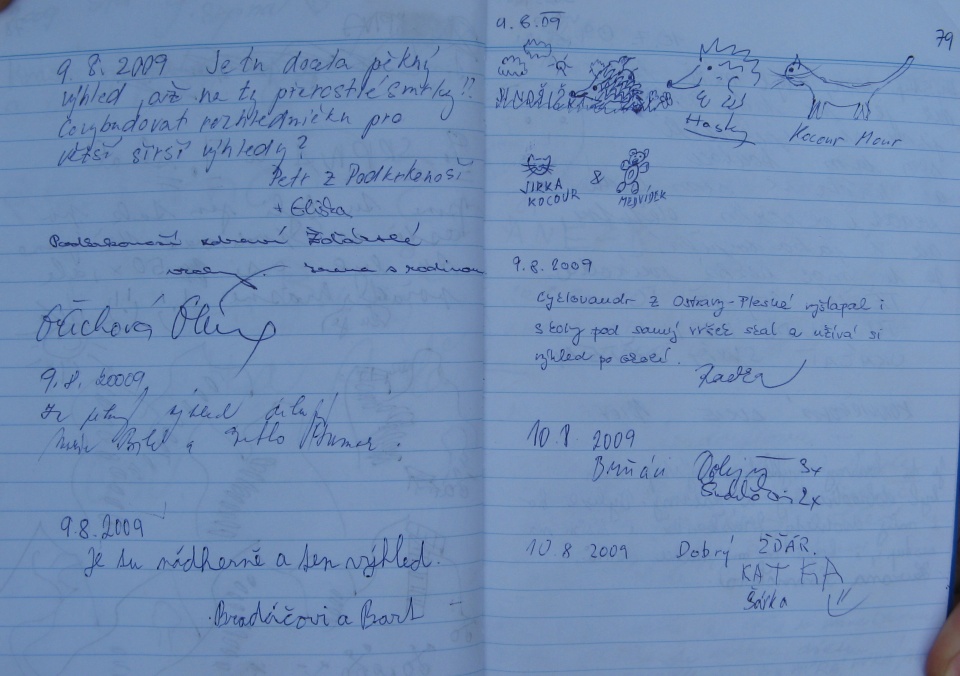 9. 8. 2009 Je tu docela pěkný
výhled, až na ty přerostlé smrky!!
Co vybudovat rozhledničku pro
větší širší výhledy?
Petr z Podkrkonoší
+ Eliška
Podkrkonoší zdraví
s rodinou
9. 8. 20009
Za pěkný výhled děkují
9.8.2009
Je tu nádherně a ten výhled.
Bradáčovi a Bart
79
9. 8. 09
Hasky
Kocour Mour
JIRKA
KOCOUR
&
MEDVÍDEK
9.8.2009
Cyklovandr z Ostravy-Plesné vyšlapal i
schody pod samý vršek skal a užívá si
výhled po okolí.
Radka
10.8 2009
Brňáci 3x
2x
10.8 2009 Dobrý ŽĎÁR.
KATKA
Šárka